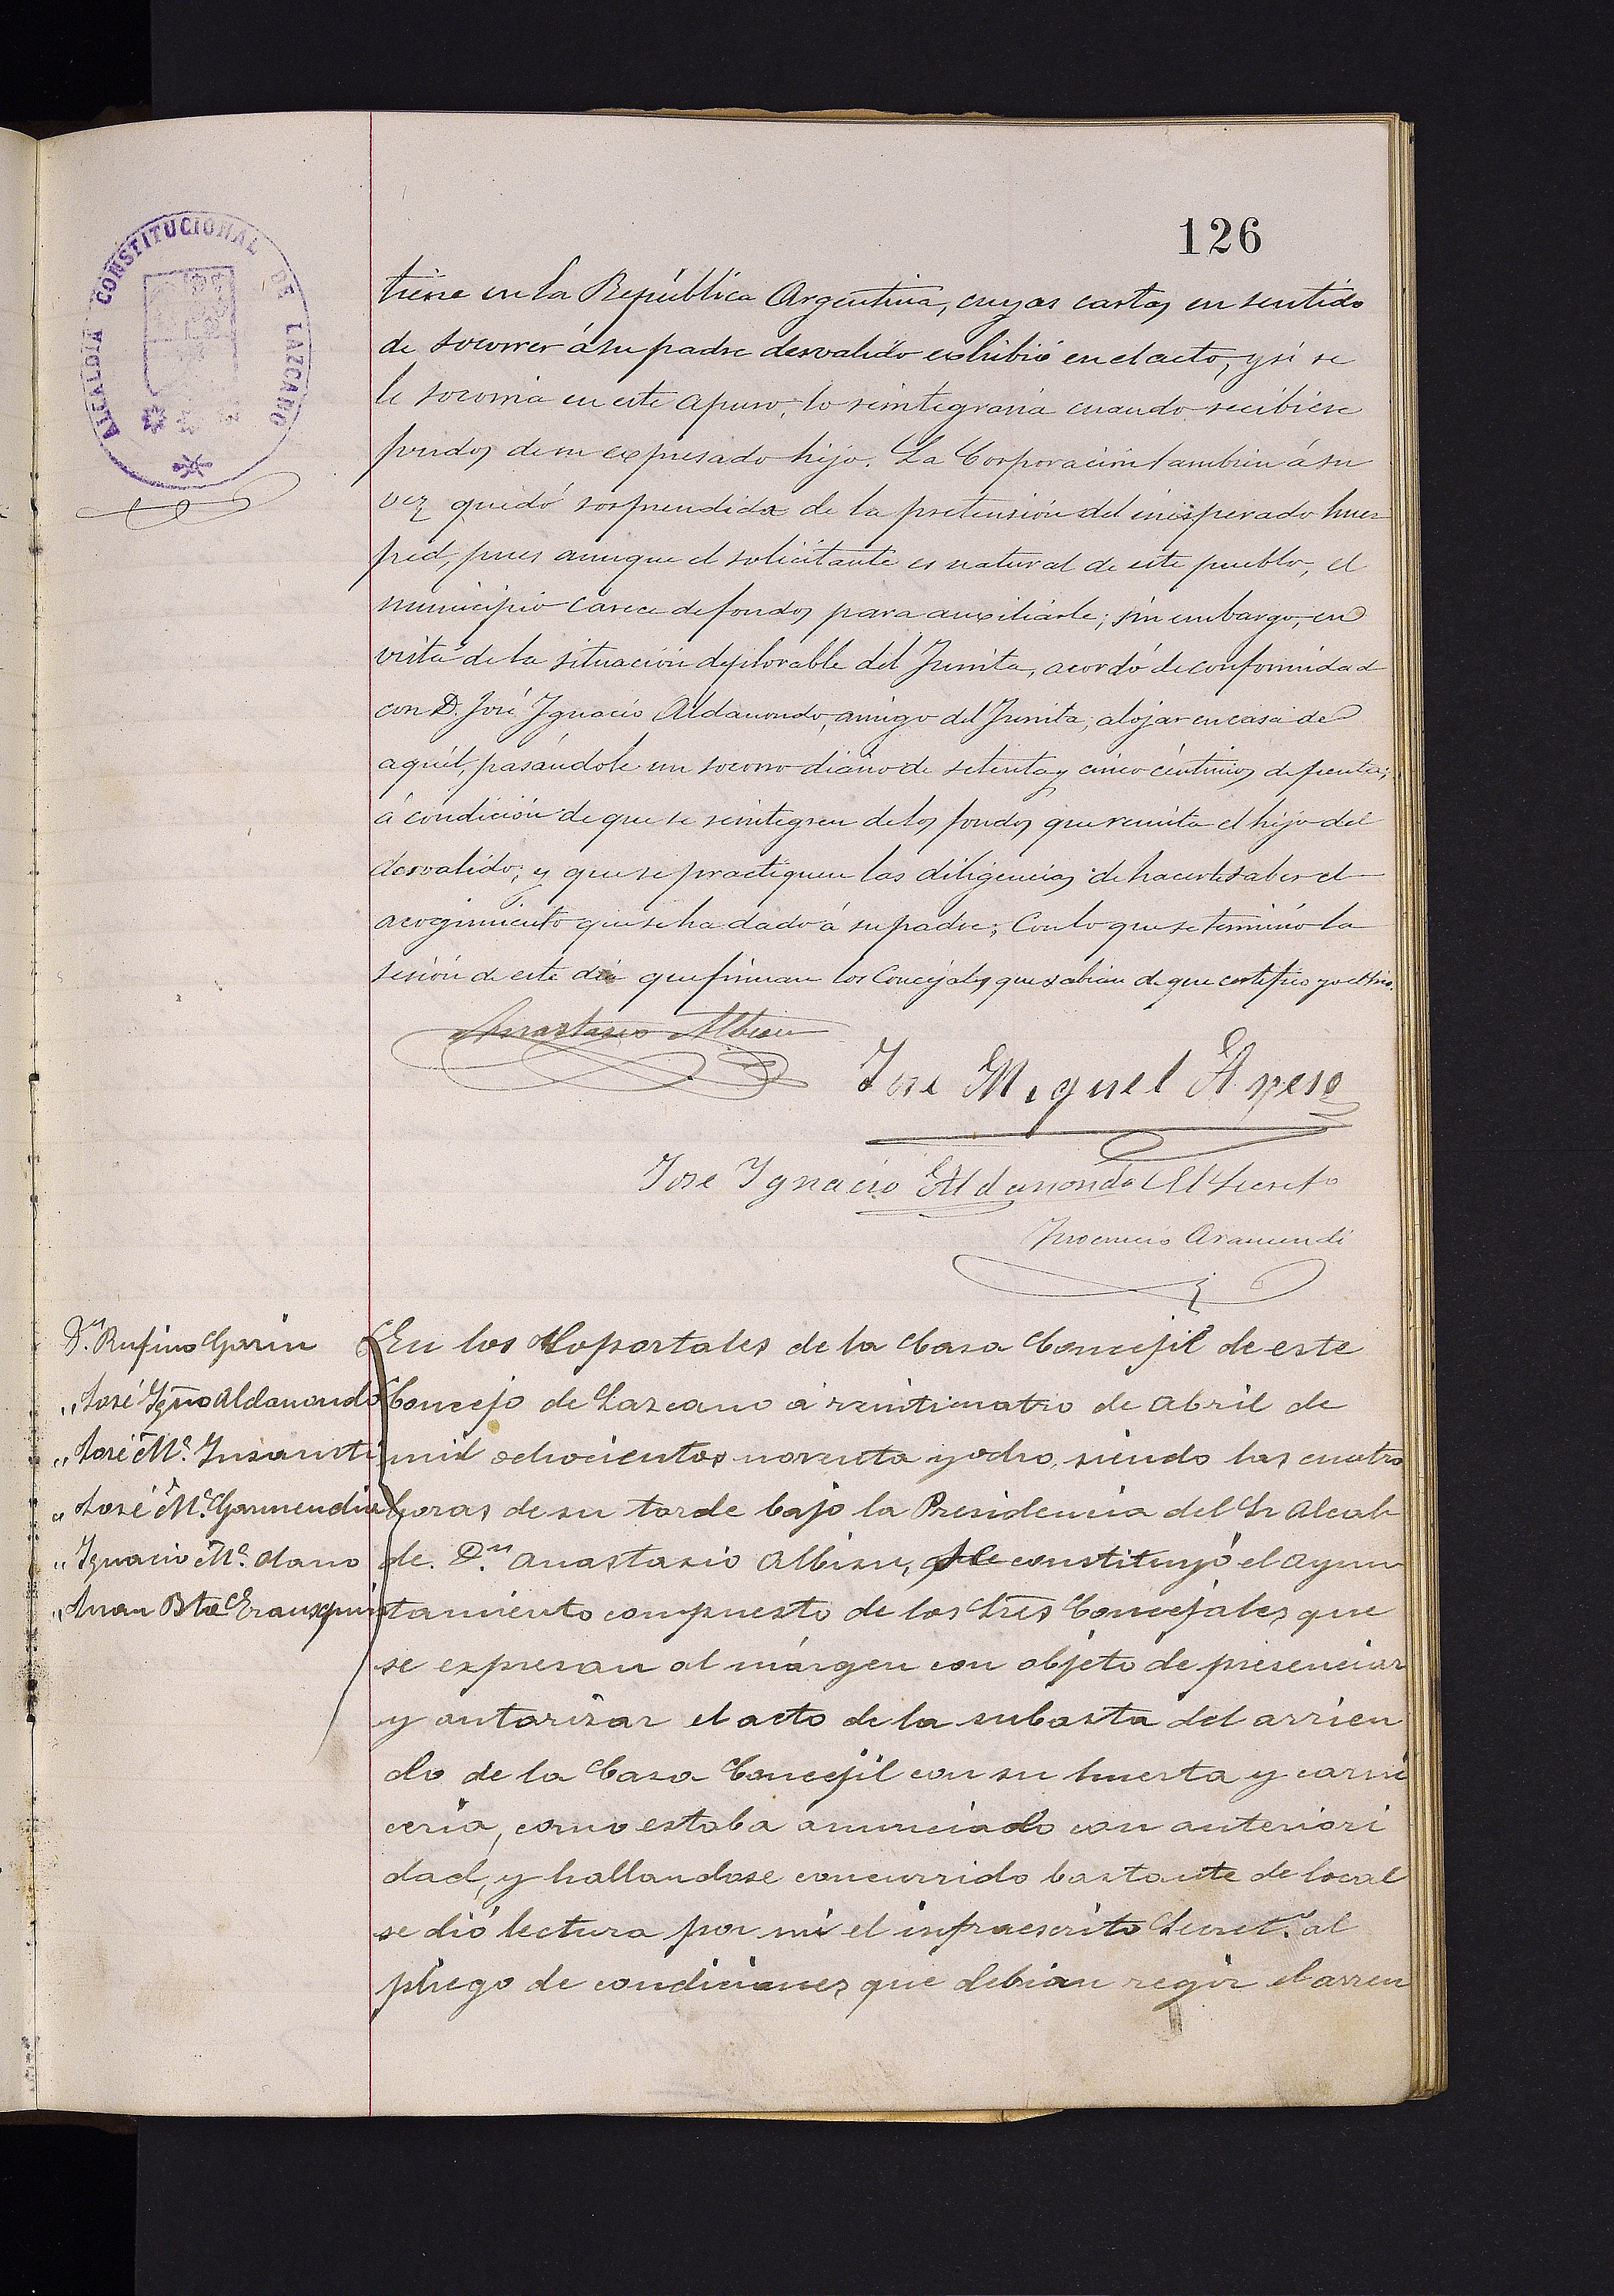 126
ALCALDIA CONSTITUCIONAL DE LAZCANO
tiene en la República Argentina, cuyas cartas en sentido
de socorrer á su padre desvalido exhibió en el acto, y si se
le socorria en este apuro, lo reintegraria cuando recibiese
fondos de su expresado hijo. La Corporación tambien á su
vez quedó sorprendida de la pretensión del inesperado hues
ped, pues aunque el solicitante es natural de este pueblo, el
municipio carece de fondos para auxiliarle; sin embargo, en
vista de la situación deplorable del Iunita, acordó de conformidad
con D. José Ignacio Aldanondo, amigo del Iunita, alojar en casa de
aquél, pasándole un socorro diario de setenta y cinco céntimos de peseta;
á condición de que se reintegren de los fondos que remita el hijo del
desvalido; y que se practiquen las diligencias de hacerle saber el
acogimiento que se ha dado á su padre; Con lo que se terminó la
sesión de este dia que firman los Concejales que sabian de que certifico yo el Srio.
Anastasio Albisu
Jose Miguel Apeso
Jose Ignacio Aldanondo El Secreto
Inocencio Aramendi
D.n Rufino Garin
„ José Ygnº Aldanondo
„ José Mª. Insausti
„ José Mª. Garmendia
„ Ignacio Mª. Olano
„ Juan Bta Erausquin
En los Soportales de la Casa Concejil de este
Concejo de Lazcano á veinticuatro de Abril de
mil ochocientos noventa y ocho, siendo las cuatro
horas de su tarde bajo la Presidencia del Sr Alcal
de. D.n Anastasio Albisu, se constituyó el Ayun
tamiento compuesto de los Sres Concejales que
se expresan al márgen con objeto de presenciar
y autorizar el acto de la subasta del arrien
do de la Casa Concejil con su huerta y carni
ceria, como estaba anunciado con anteriori
dad, y hallandose concurrido bastante de local
se dió lectura por mi el infraescrito Secret.º al
pliego de condiciones que debian regir el arren